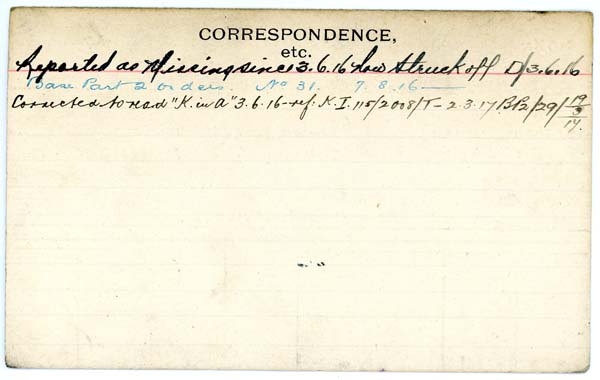 CORRESPONDENCE,
etc.
Reported as Missing since 3.6.16 Now Struck off D/3.6.16
Base Part 2 orders. No 31. 7.8.16 —
Corrected to read "K. in A" 3.6.16 - ref: K.I. 115/2008/T - 2.3.17 BP2/29/ 19/3/17.